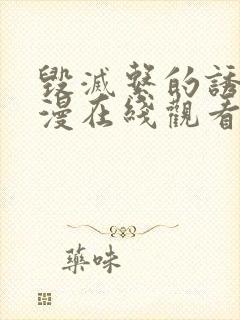 毀滅繫的誘
漫在綫觀看
藥味